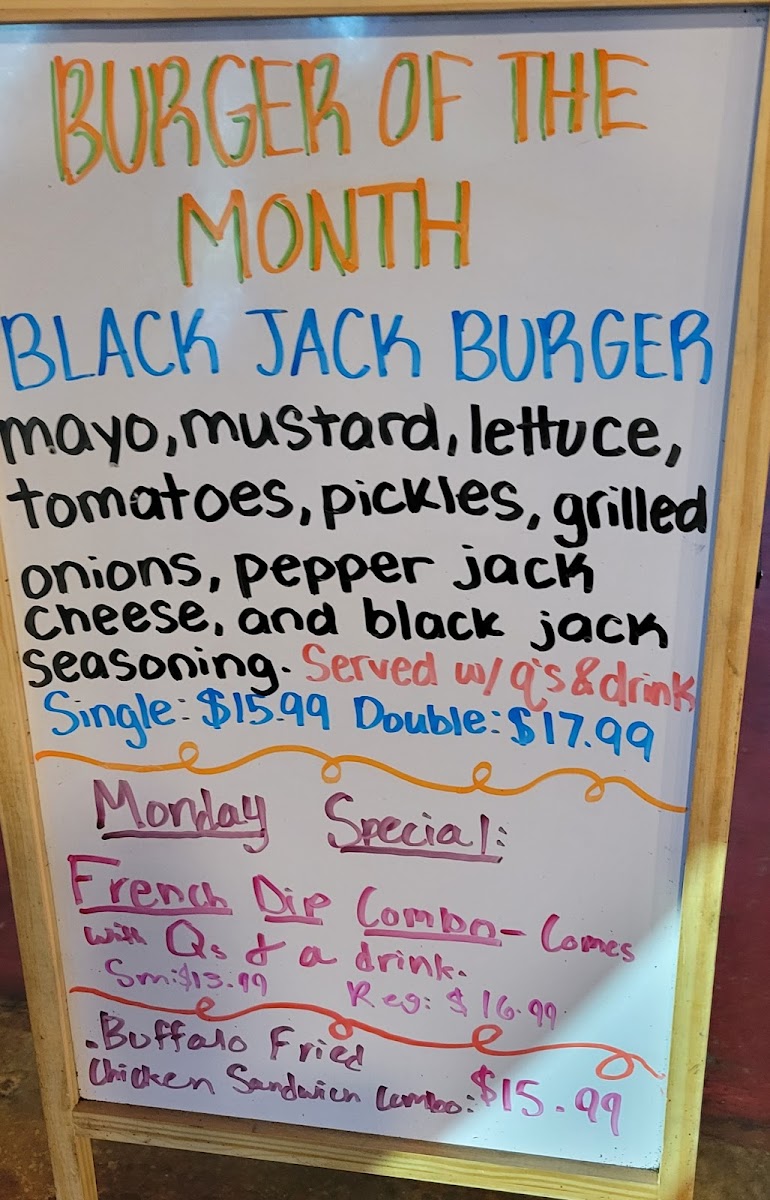 BURGER OF THE
MONTH
BLACK JACK BURGER
mayo, mustard, lettuce,
tomatoes, pickles, grilled
onions, pepper jack
cheese, and black jack
seasoning. Served w/ q's & drink
Single: $15.99 Double: $17.99
Monday Special:
French Dip Combo - Comes
with Qs & a drink.
Sm: $13.99 Reg: $16.99
. Buffalo Fried
Chicken Sandwich Combo: $15.99